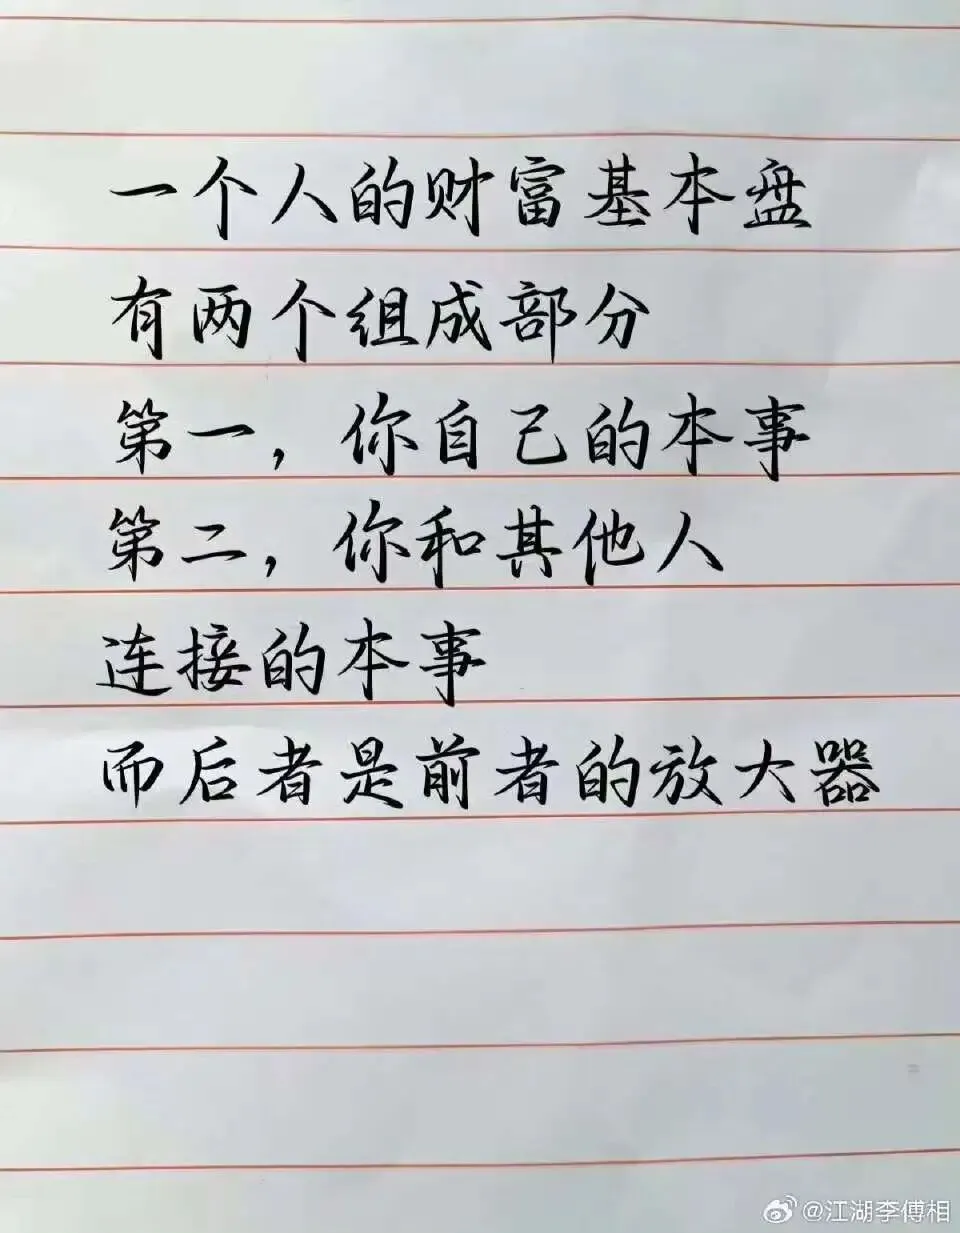 一个人的财富基本盘
有两个组成部分
第一，你自己的本事
第二，你和其他人
连接的本事
而后者是前者的放大器
@江湖李傅相